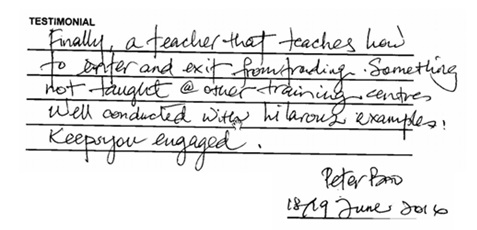 TESTIMONIAL
Finally, a teacher that teaches how
to enter and exit from trading. Something
not taught @ other training centres
Well conducted with hilarous examples!
Keeps you engaged.
Peter
18/19 June 2016